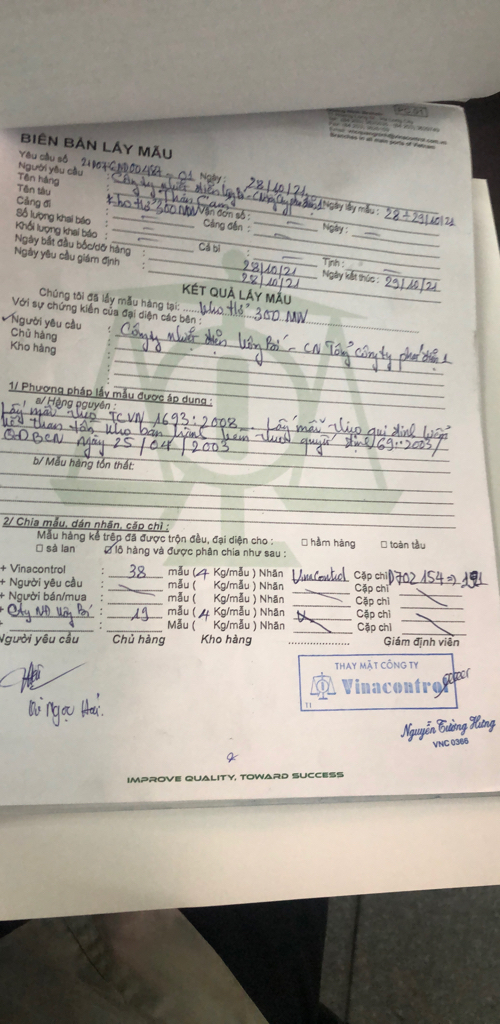 Branches in all main ports of Vietnam
BIÊN BẢN LẤY MẪU
Yêu cầu số Ngày : 28/10/21
Người yêu cầu : Công ty nhiệt điện
Tên hàng : Than Cám Ngày lấy mẫu : 28 → 29/10/21
Tên tàu : Kho thế 300 MW Vận đơn số : Ngày :
Cảng đi : Cảng đến :
Số lượng khai báo :
Khối lượng khai báo : Cả bì : Tịnh :
Ngày bắt đầu bốc/dỡ hàng : 28/10/21 Ngày kết thúc : 29/10/21
Ngày yêu cầu giám định : 28/10/21
KẾT QUẢ LẤY MẪU
Chúng tôi đã lấy mẫu hàng tại: Kho thế 300 MW
Với sự chứng kiến của đại diện các bên :
Người yêu cầu : Công ty nhiệt điện Uông Bí - CN Tổng công ty phát điện 1
Chủ hàng :
Kho hàng :
1/ Phương pháp lấy mẫu được áp dụng :
a/ Hàng nguyên :
Lấy mẫu theo TCVN 1693:2008 Lấy mẫu theo qui định
than tồn kho ban hành kèm theo quyết định 69 2003/
QĐBCN ngày 25/04/2003
b/ Mẫu hàng tổn thất:
2/ Chia mẫu, dán nhãn, cấp chì :
Mẫu hàng kể trên đã được trộn đều, đại diện cho : hầm hàng toàn tầu
sà lan lô hàng và được phân chia như sau :
+ Vinacontrol : 38 mẫu ( 4 Kg/mẫu ) Nhãn Vinacontrol Cặp chì D702 154 → 191
+ Người yêu cầu : mẫu ( Kg/mẫu ) Nhãn Cặp chì
+ Người bán/mua : mẫu ( Kg/mẫu ) Nhãn Cặp chì
+ Cty NĐ Uông Bí : 19 mẫu ( 4 Kg/mẫu ) Nhãn Cặp chì
+ : Mẫu ( Kg/mẫu ) Nhãn Cặp chì
Người yêu cầu Chủ hàng Kho hàng Giám định viên
THAY MẶT CÔNG TY
Vinacontrol
11
Ngọc Hải.
Nguyễn Tường Hưng
VNC 0366
IMPROVE QUALITY, TOWARD SUCCESS